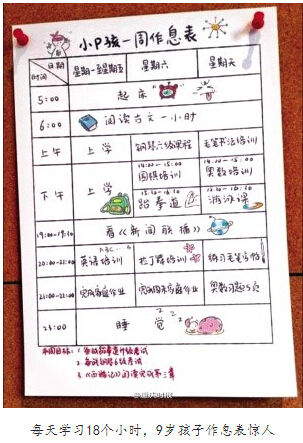 小P孩一周作息表
日期
时间
星期一至星期五 星期六 星期天
5:00 起床
6:00 阅读古文一小时
上午 上学 钢琴六级课程 毛笔书法培训
下午 上学
14:00-15:00 14:00-15:00
围棋培训 奥数培训
跆拳道 游泳课
19:00-19:30 看《新闻联播》
ABC
20:00-21:00 英语培训 拉丁舞培训 练习毛笔字帖
21:00-23:00 完成家庭作业 完成周末家庭作业 奥数习题15页
23:00 睡觉 zzz
本周目标:
1. 参加跆拳道升级考试
2. 每城钢琴6级考试
3.《西游记》阅读完成第三章
每天学习18个小时，9岁孩子作息表惊人